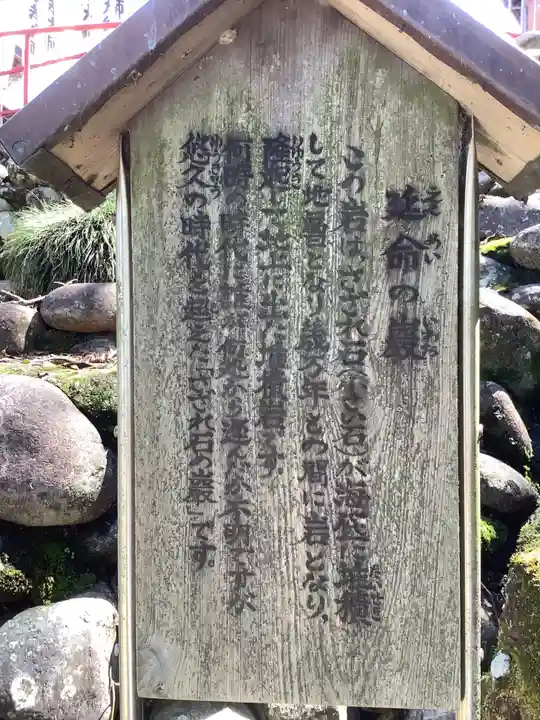 延命の巖
えんめい いわお
この岩は、さざれ石(小石)が海底に堆積
して地層となり幾万年との間に岩となり、
隆起して地上に出た堆積岩です。
何時の時代に誰が何処から運んだか不明ですが
悠久の時代を超えた「さざれ石の巖」です。